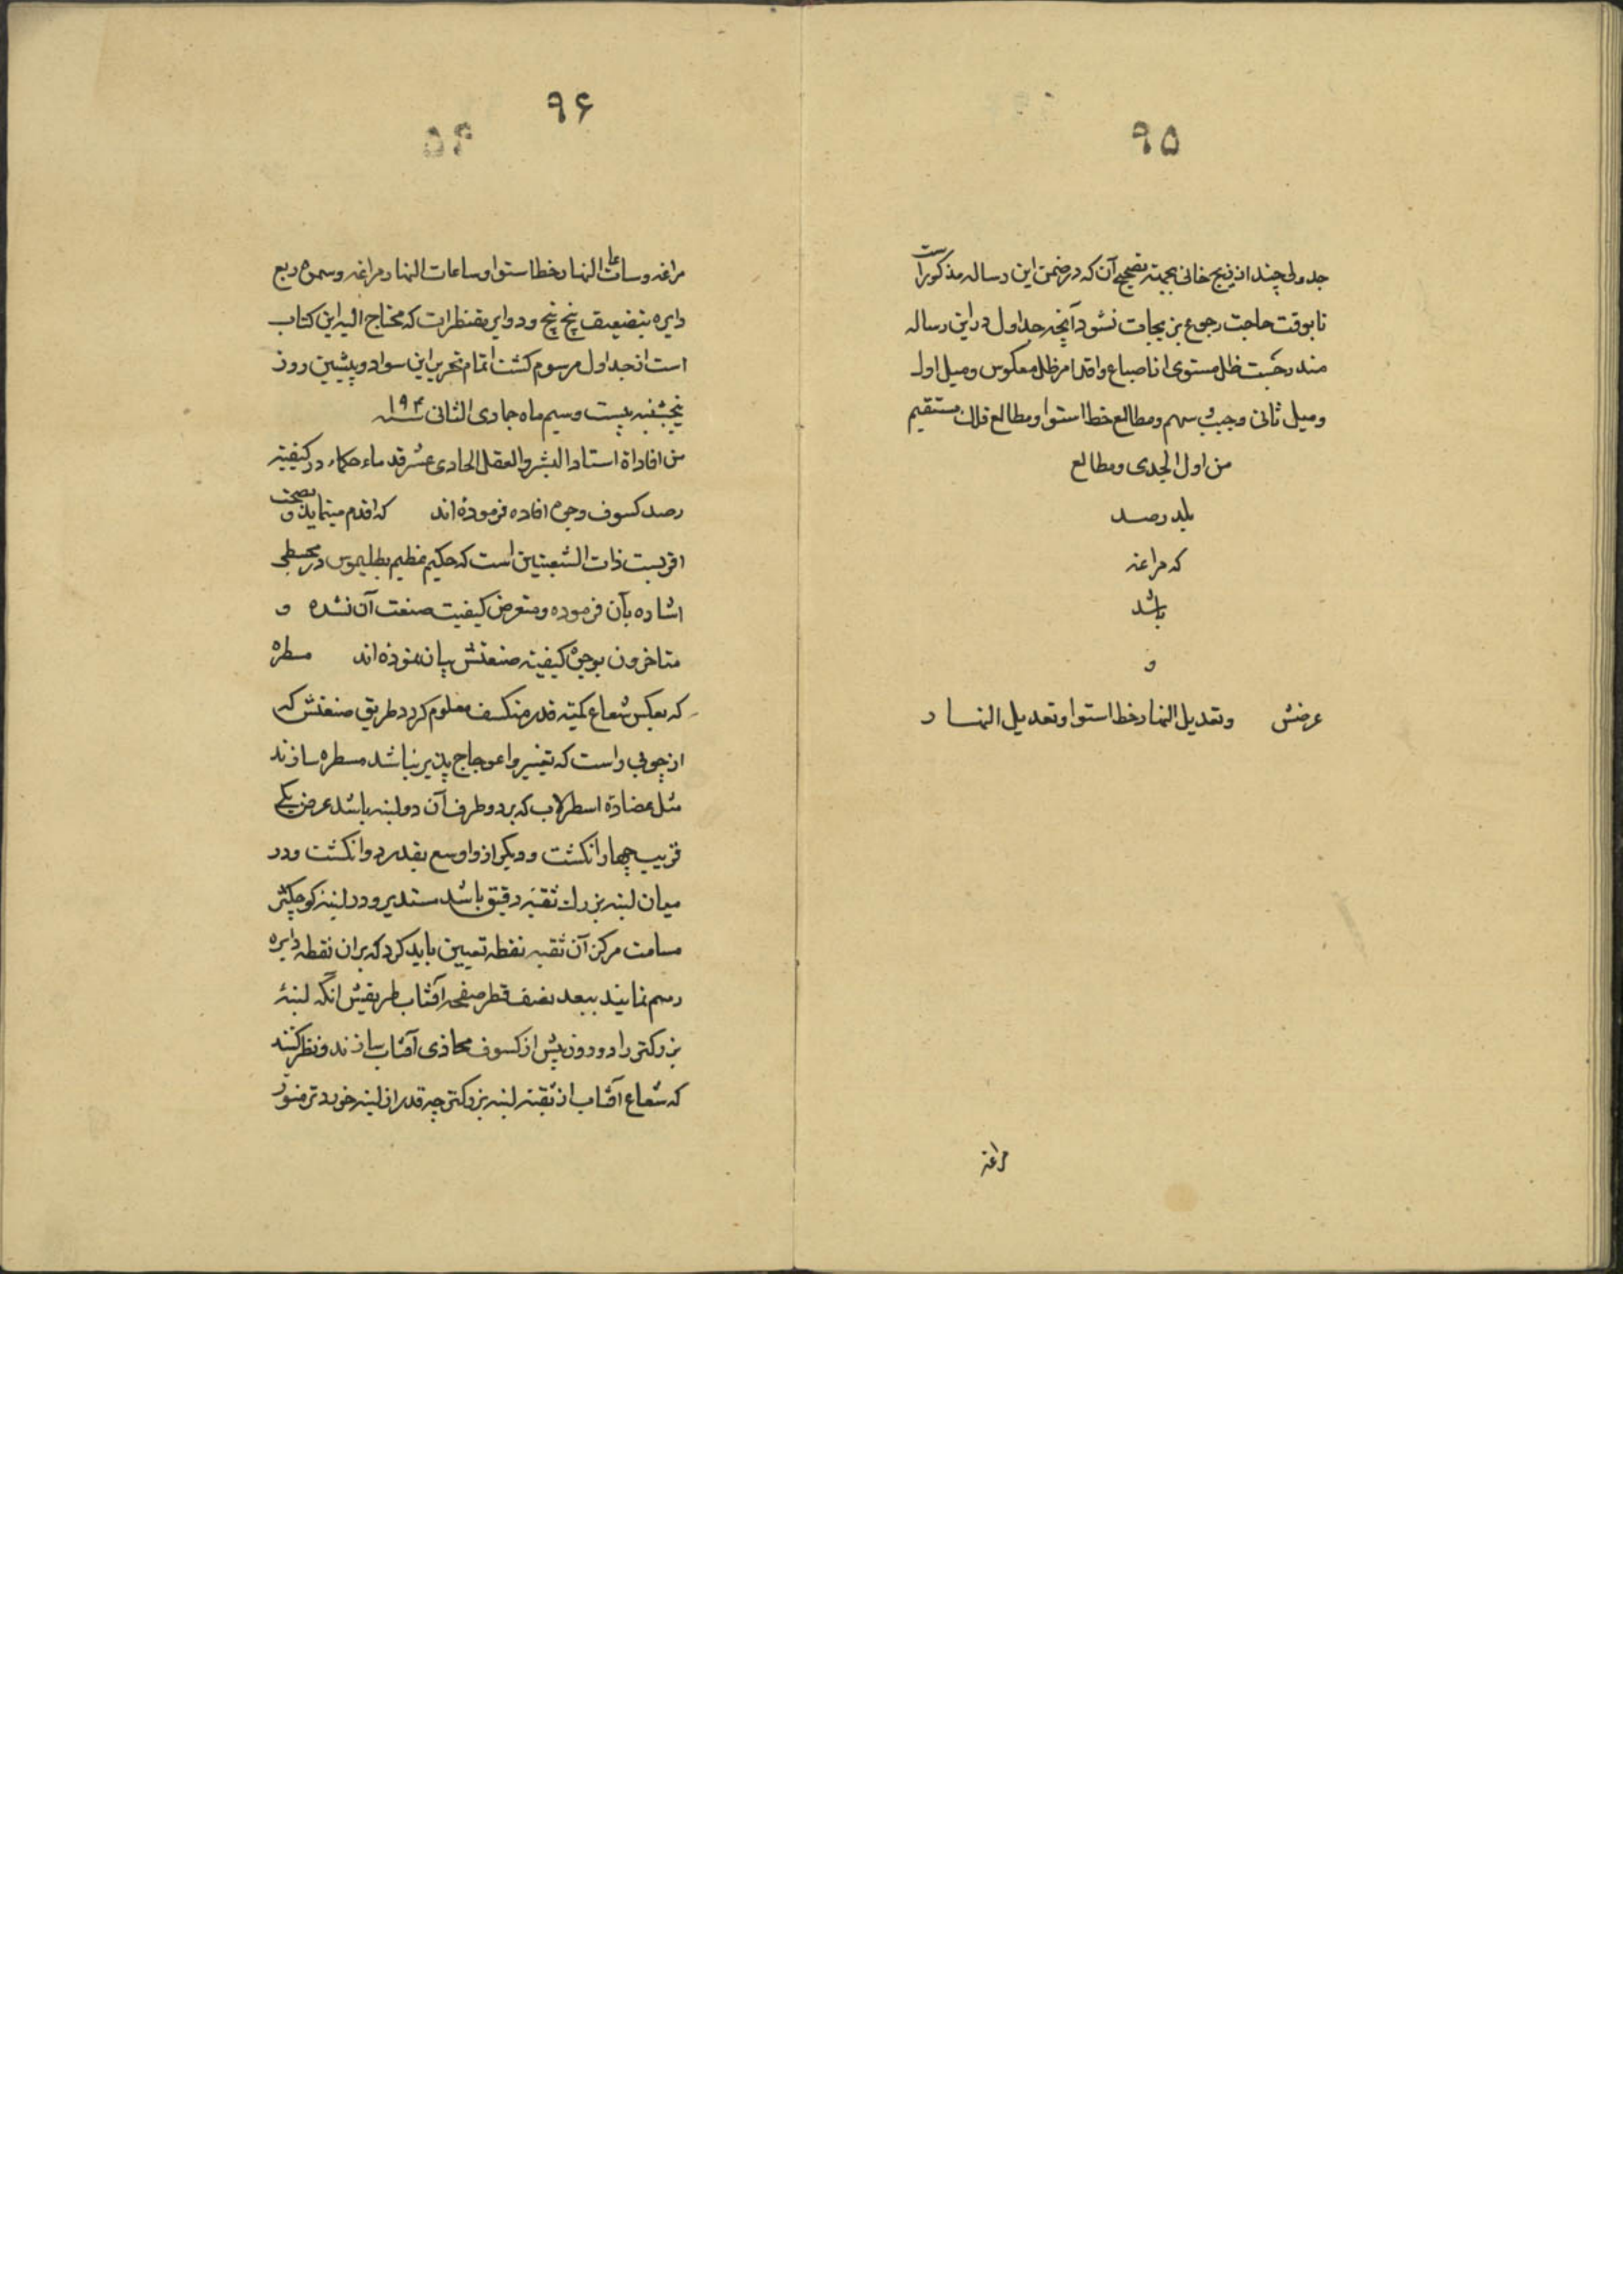 ۹۵
جدولی چند از زیج خانی بجهته تصحیح آن که در ضمن این رساله مذکور است
تا بوقت حاجت رجوع بزیجات نشود آنچه جداول در این رساله
مندرجست ظل مستوی از اصابع و اقدام و ظل معکوس و میل اول
و میل ثانی و جیب و سهم و مطالع خط استوا و مطالع فلک مستقیم
من اول الجدی و مطالع
بلد رصد
که مراغه
باشد
و
عرضش و تعدیل النهار خط استوا و تعدیل النهار
مراغه
۹۶
مراغه و ساعات النهار خط استوا و ساعات النهار مراغه و سموت ربع
دایره بتضعیف پنج پنج و دوایر مقنطرات که محتاج الیه این کتاب
است از جداول مرسوم کشت اتمام تحریر این سواد و پیشین روز
پنجشنبه بیست و سیم ماه جمادی الثانی سنه ۱۹۴
من افاداة استاد البشر و العقل الحادی عشر قدماء حکماء در کیفیته
رصد کسوف وجوه افاده فرموده‌اند که اقدم مینماید و بصحت
اقربست ذات الشعبتین است که حکیم عظیم بطلیموس در مجسطی
اشاره بآن فرموده و متعرض کیفیت صنعت آن نشده و
متاخرون بوجوه کیفیته صنعتش بیان نموده‌اند مسطره
که بعکس شعاع کمیته قدر منکسف معلوم کرد طریق صنعتش که
از چوبی راست که تغییر و اعوجاج پذیر نباشد مسطره سازند
مثل عضادة اسطرلاب که بر دو طرف آن دو لبنه باشد عرض یکی
قریب چهار انکشت و دیکر از و اوسع بقدر دو انکشت و در
میان لبنه بزرک ثقبه دقیق باشد مستدیر و در لبنه کوچکتر
مسامت مرکز آن ثقبه نقطه تعیین باید کرد که بر ان نقطه دایره
رسم نمایند ببعد نصف قطر صفحه آفتاب طریقش انکه لبنهٔ
بزرکتر را دو روز پیش از کسوف محاذی آفتاب سازند و نظر کنند
که شعاع آفتاب از ثقبه لبنه بزرکتر چه قدر از لبنه خوردتر منور